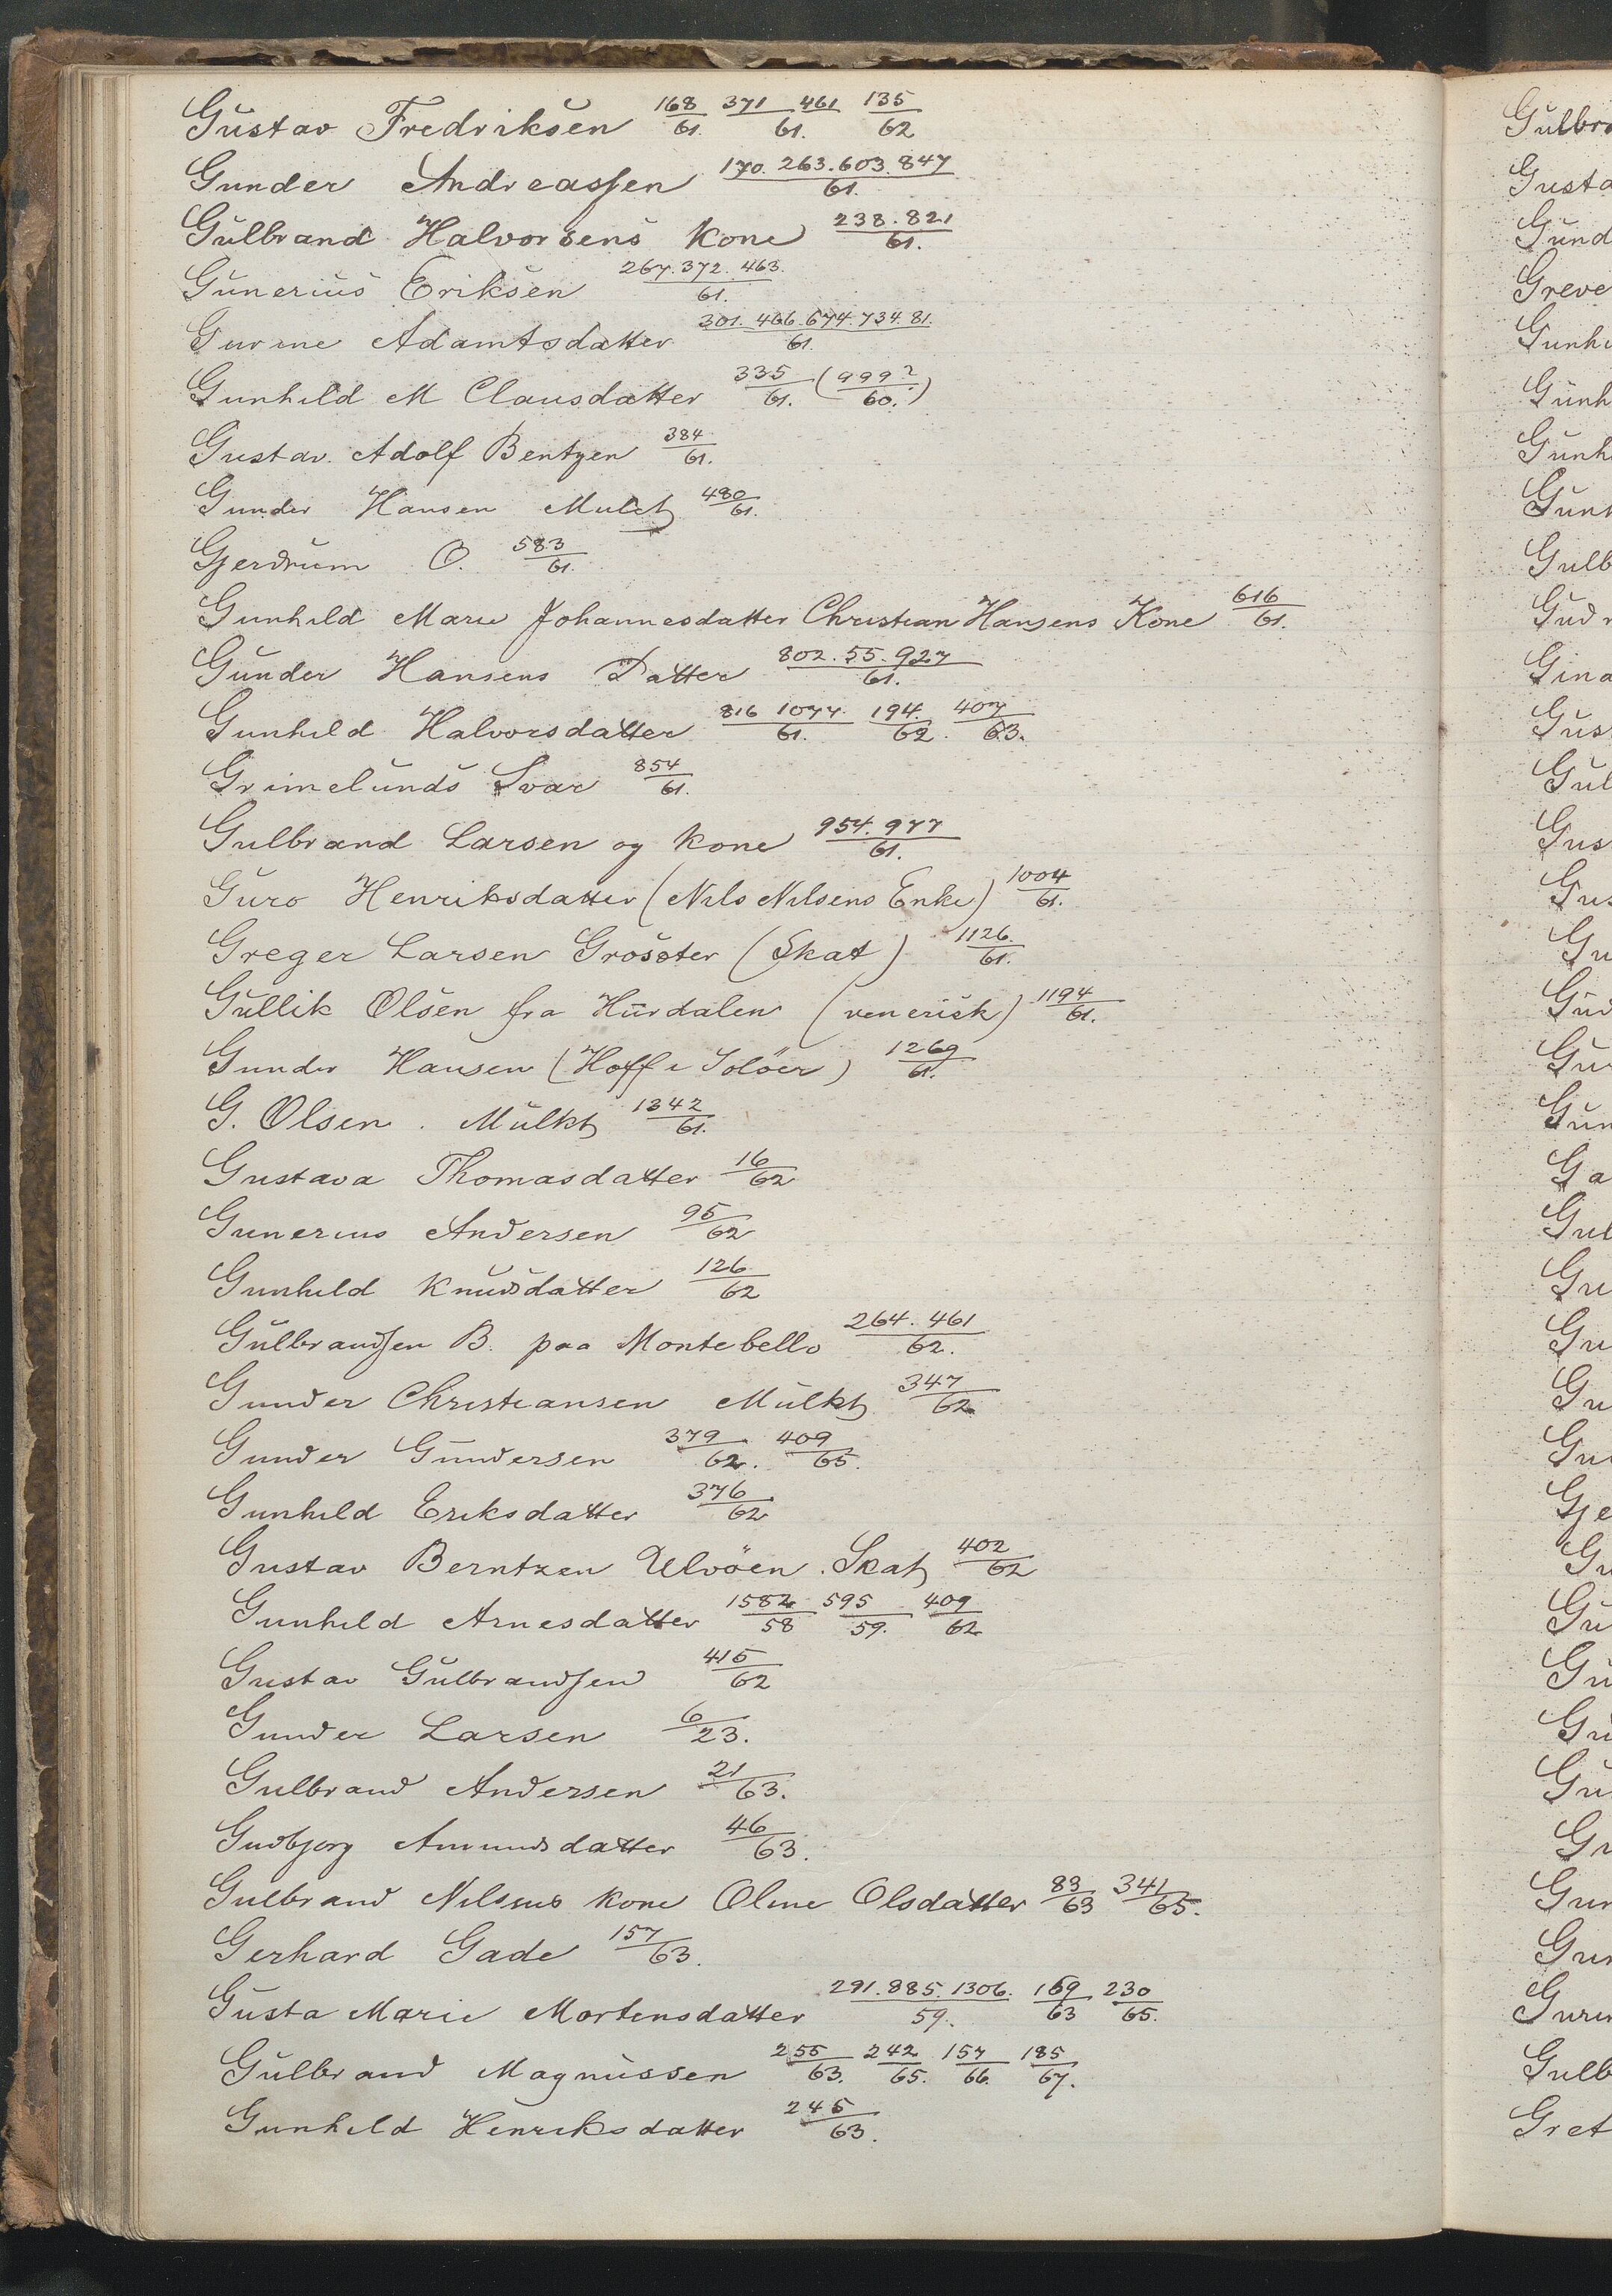 Gustav Fredriksen 168/61. 371 461/61. 135/62
Gunder Andreassen 170. 263. 603. 847/61.
Gulbrand Halvorsens kone 238. 821/61.
Gunerius Eriksen 267. 372. 463./61.
Gurine Adamtsdatter 301. 466. 674. 734. 81./61.
Gunhild M Clausdatter 335/61. (999?/60.)
Gustav. Adolf Bentzen 384/61.
Gunder Hansen Mulct 480/61.
Gjerdrum O. 583/61.
Gunhild Marie Johannesdatter Christian Hansens Kone 616/61.
Gunder Hansens Datter 802. 55. 927/61.
Gunhild Halvorsdatter 816 1077./61. 194./62. 407/63.
Grimelunds Svar 854/61.
Gulbrand Larsen og kone 954. 977/61.
Guro Henriksdatter (Nils Nilsens Enke) 1004/61.
Greger Larsen Grosster (Skat) 1126./61.
Gullik Olsen fra Hurdalen (venerisk) 1194/61.
Gunder Hansen (Hoff i Solöer) 1269/61.
G. Olsen. Mulkt 1342/61.
Gustava Thomasdatter 16/62
Gunerius Andersen 95/62
Gunhild Knudsdatter 126/62
Gulbrandsen B. paa Montebello 264. 461/62.
Gunder Christiansen Mulkt 347/62
Gunder Gundersen 379/62. 409/65.
Gunhild Eriksdatter 376/62
Gustav Berntzen Ulvöen. Skat 402/62
Gunhild Arnesdatter 1582/58 595/59. 409/62
Gustav Gulbrandsen 415/62
Gunder Larsen 6/23.
Gulbrand Andersen 21/63.
Gudbjorg Amundsdatter 46/63.
Gulbrand Nilsens kone Oline Olsdatter 83/63 341/65.
Gerhard Gade 157/63.
Gusta Marie Mortensdatter 291. 885. 1306./59. 169/63 230/65.
Gulbrand Magnussen 255/63. 242/65. 157/66. 185/67.
Gunhild Henriksdatter 245/63.